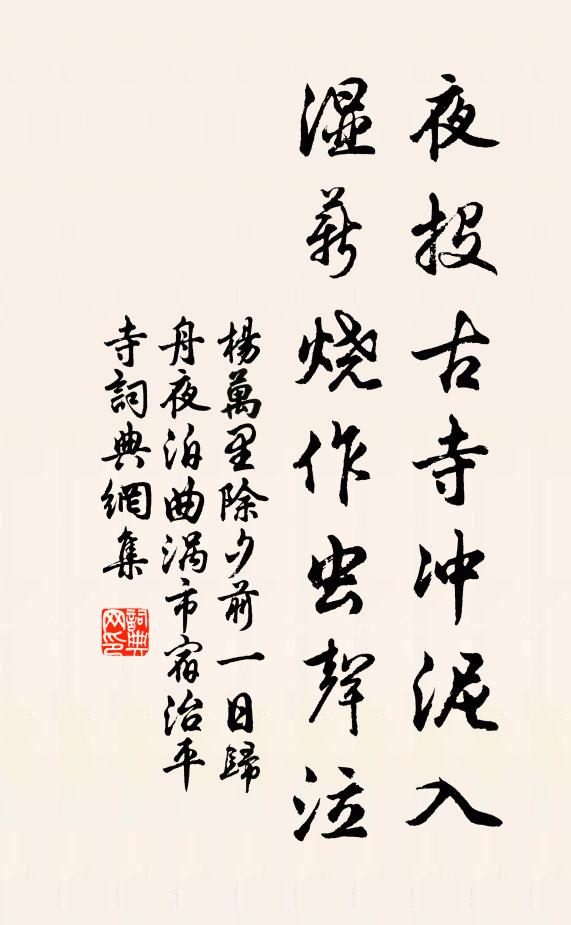 夜投古寺冲泥入
湿薪烧作虫聲泣
楊萬里除夕前一日歸
舟夜泊曲渦市宿治平
寺詞典網集
詞典
网印